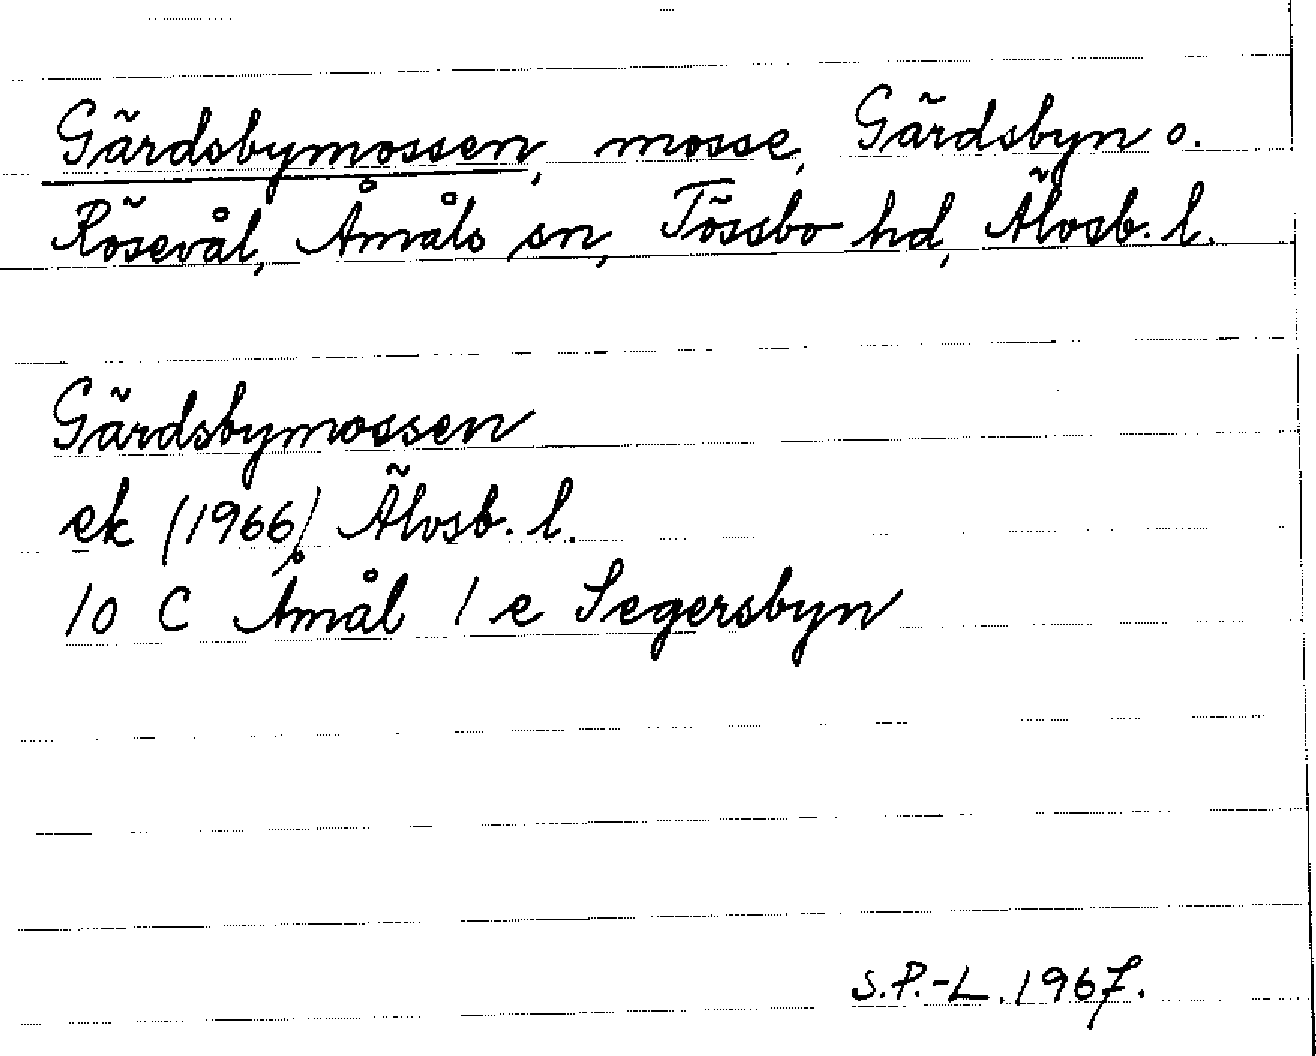 Gärdsbymossen, mosse, Gärdsbyn o.
Rösevål, Åmåls sn, Tössbo hd, Älvsb. l.
Gärdsbymossen
ek (1966) Älvsb. l.
10 C Åmål 1 e Segersbyn
S.P.-L. 1967.